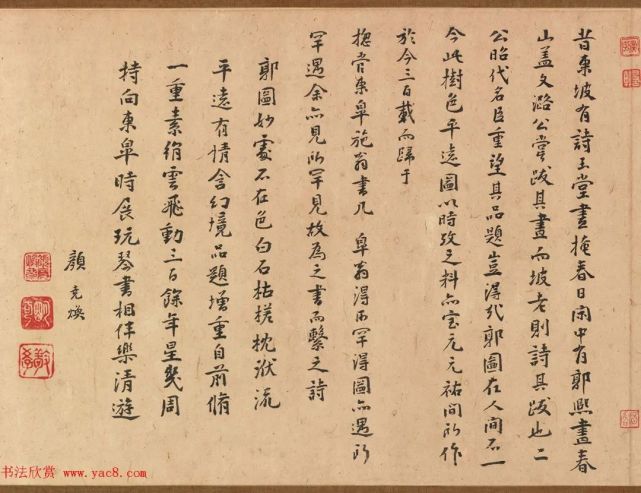 昔東坡有詩玉堂晝掩春日閑中有郭熙畫春
山盖文潞公嘗跋其畫而坡老則詩其跋也二
公昭代名臣重望其品題豈得代郭圖在人間不一
今此樹色平遠圖以時攷之料亦宝元元祐間所作
於今三百載而歸于
揔管東臯施翁書几 臯翁得所罕得圖亦遇所
罕遇余亦見所罕見故為之書而繫之詩
郭圖妙處不在色白石枯槎枕浟流
平遠有情含幻境品題增重自前脩
一重素絹雲飛動三百餘年星幾周
持向東臯時展玩琴書相伴樂清遊
顏堯煥
书法欣赏 www.yac8.com